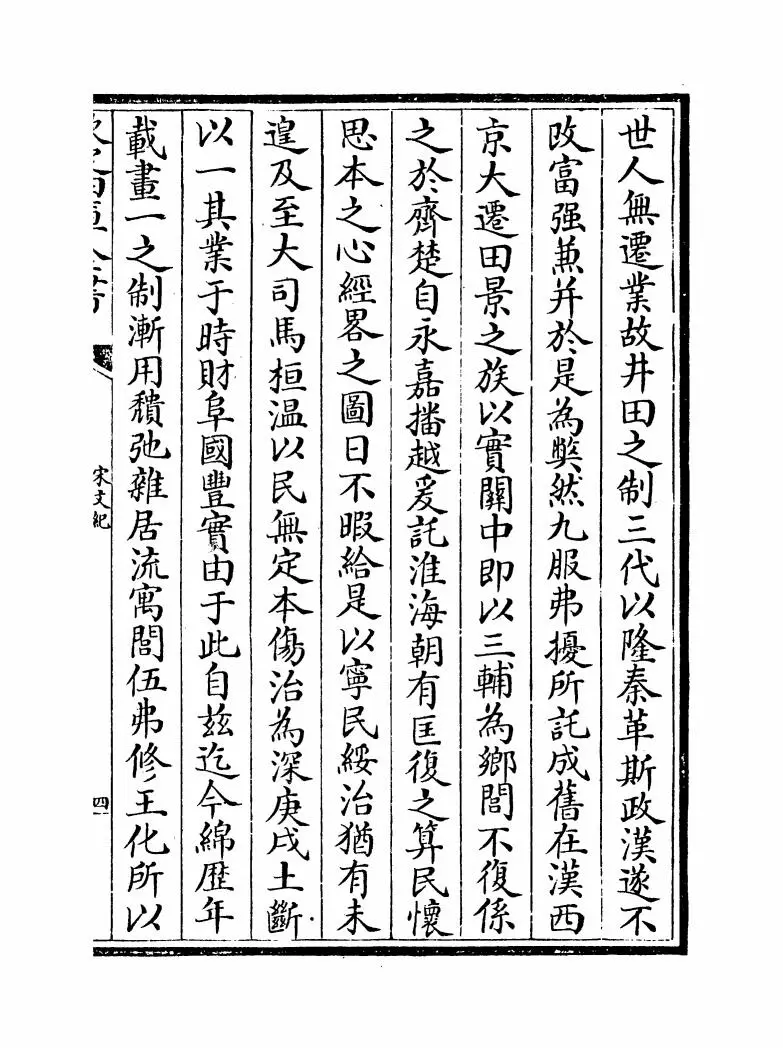 世人無遷業故井田之制三代以隆秦革斯政漢遂不
改富强兼并於是為獘然九服弗擾所託成舊在漢西
京大遷田景之族以實關中即以三輔為鄉閭不復係
之於齊楚自永嘉播越爰託淮海朝有匡復之算民懷
思本之心經畧之圖日不暇給是以寧民綏治猶有未
遑及至大司馬桓温以民無定本傷治為深庚戌土斷
以一其業于時財阜國豐實由于此自兹迄今綿歴年
載畫一之制漸用頽弛雜居流寓閭伍弗修王化所以
宋文紀
四